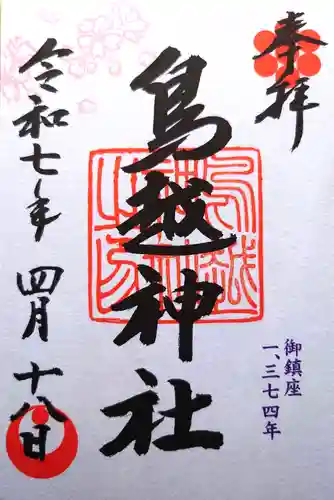 奉拝
御鎮座
一、三七四年
鳥越神社
令和七年 四月 十八日